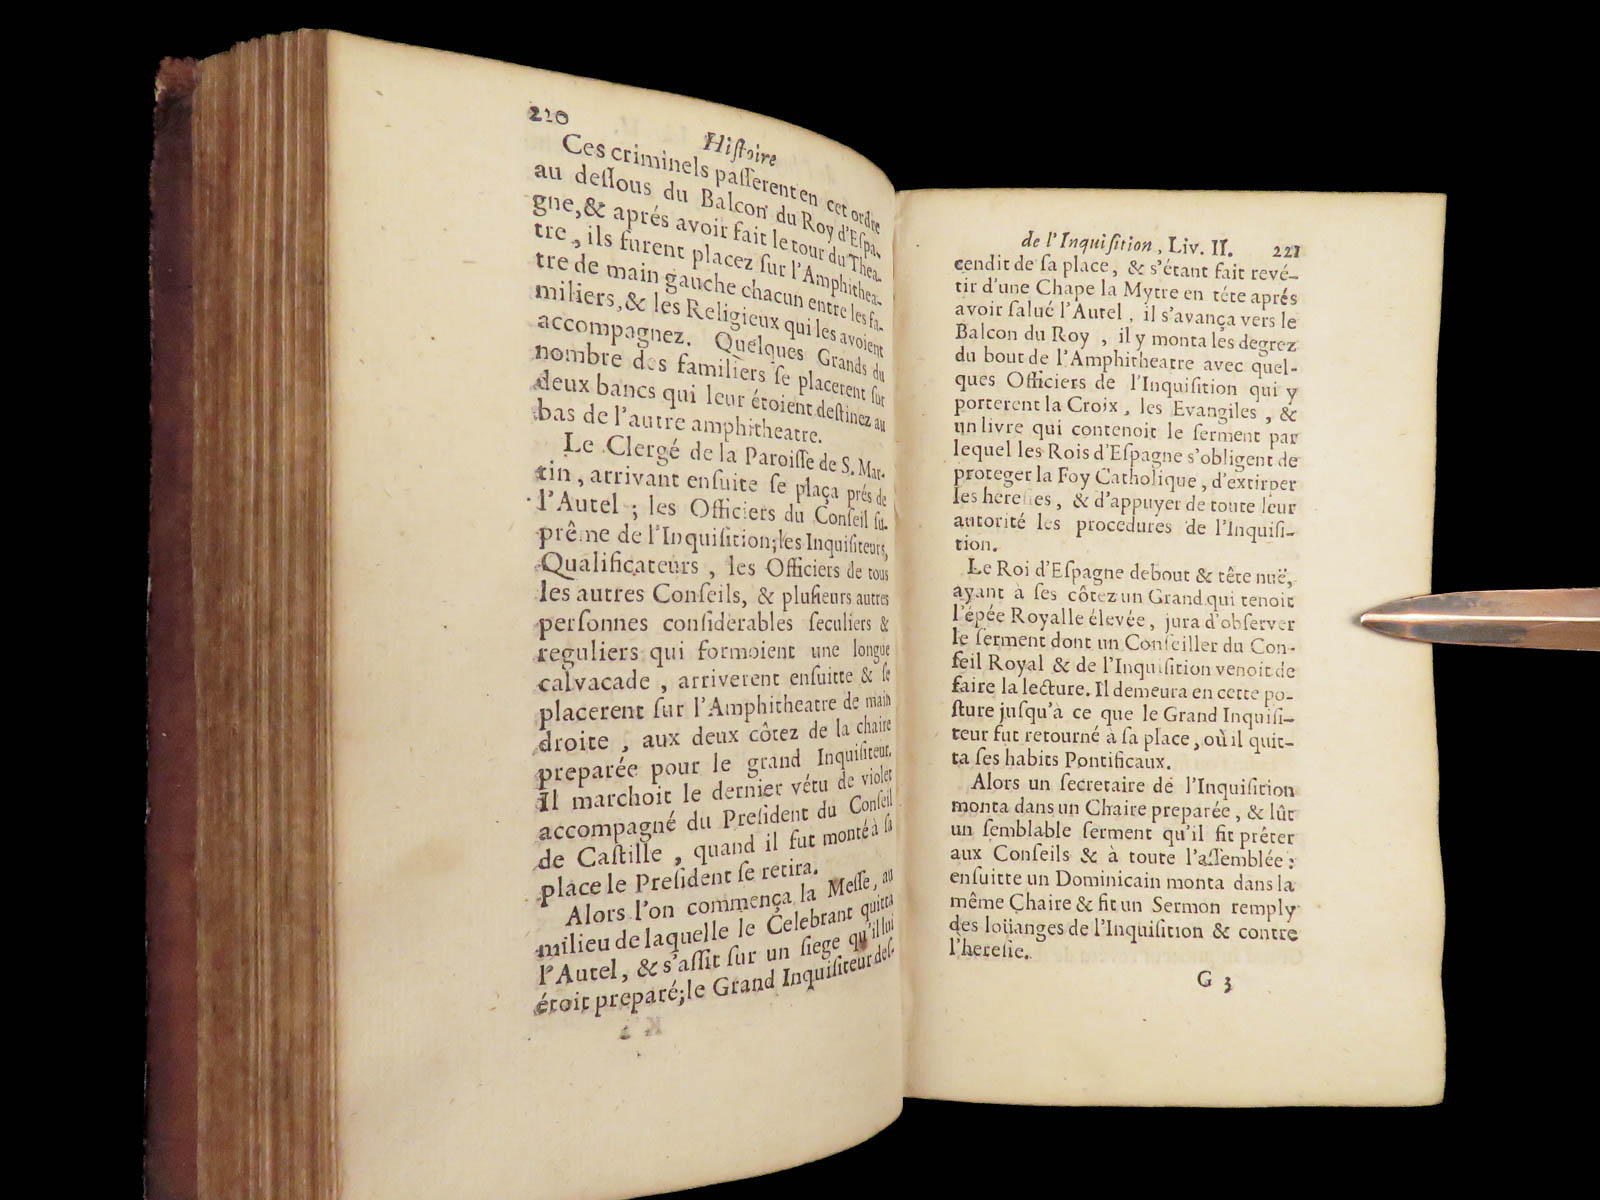 220
Hiſtoire
Ces criminels paſſerent en cet ordre
au deſſous du Balcon du Roy d'Eſpa-
gne, & aprés avoir fait le tour du Thea-
tre, ils furent placez ſur l'Amphithea-
tre de main gauche chacun entre les fa-
miliers, & les Religieux qui les avoient
accompagnez. Quelques Grands du
nombre des familiers ſe placerent ſur
deux bancs qui leur étoient deſtinez au
bas de l'autre amphitheatre.
Le Clergé de la Paroiſſe de S. Mar-
tin, arrivant enſuite ſe plaça prés de
l'Autel; les Officiers du Conſeil ſu-
prême de l'Inquiſition; les Inquiſiteurs,
Qualificateurs, les Officiers de tous
les autres Conſeils, & pluſieurs autres
perſonnes conſiderables ſeculiers &
reguliers qui formoient une longue
calvacade, arriverent enſuitte & ſe
placerent ſur l'Amphitheatre de main
droite, aux deux côtez de la chaire
preparée pour le grand Inquiſiteur.
Il marchoit le dernier vétu de violet
accompagné du Preſident du Conſeil
de Caſtille, quand il fut monté à ſa
place le Preſident ſe retira.
Alors l'on commença la Meſſe, au
milieu de laquelle le Celebrant quitta
l'Autel, & s'aſſit ſur un ſiege qu'il lui
étoit preparé; le Grand Inquiſiteur deſ-
de l'Inquiſition, Liv. II. 221
cendit de ſa place, & s'étant fait revé-
tir d'une Chape la Mytre en téte aprés
avoir ſalué l'Autel, il s'avança vers le
Balcon du Roy, il y monta les degrez
du bout de l'Amphitheatre avec quel-
ques Officiers de l'Inquiſition qui y
porterent la Croix, les Evangiles, &
un livre qui contenoit le ſerment par
lequel les Rois d'Eſpagne s'obligent de
proteger la Foy Catholique, d'extirper
les hereſies, & d'appuyer de toute leur
autorité les procedures de l'Inquiſi-
tion.
Le Roi d'Eſpagne debout & tête nuë,
ayant à ſes côtez un Grand qui tenoit
l'épée Royalle élevée, jura d'obſerver
le ſerment dont un Conſeiller du Con-
ſeil Royal & de l'Inquiſition venoit de
faire la lecture. Il demeura en cette po-
ſture juſqu'à ce que le Grand Inquiſi-
teur fut retourné à ſa place, où il quit-
ta ſes habits Pontificaux.
Alors un ſecretaire de l'Inquiſition
monta dans un Chaire preparée, & lût
un ſemblable ſerment qu'il fit prêter
aux Conſeils & à toute l'aſſemblée:
enſuitte un Dominicain monta dans la
même Chaire & fit un Sermon remply
des loüanges de l'Inquiſition & contre
l'hereſie.
G 3